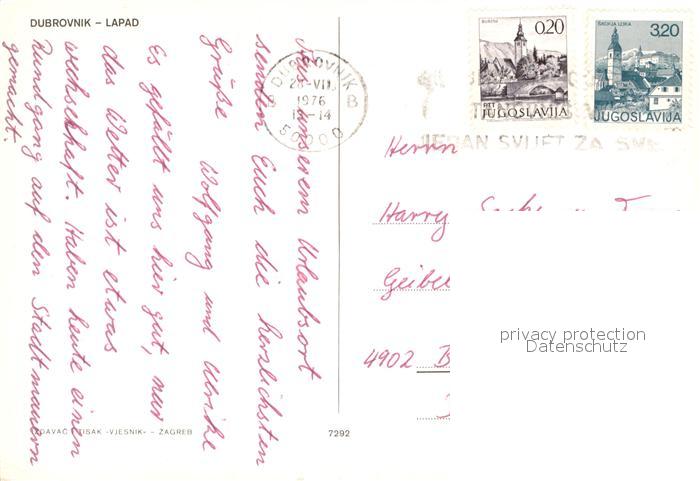 DUBROVNIK – LAPAD
unserem Urlaubsort
senden Euch die herzlichsten
Grüße Wolfgang und Ulrike
Es gefällt uns hier gut, nur
das Wetter ist etwas
wechselhaft. Haben heute einen
Rundgang auf den Stadtmauern
gemacht.
DUBROVNIK
1976
B
50000
JEDAN SVIJET ZA SVE
0,20
JUGOSLAVIJA
ŠKOFJA LOKA
3,20
JUGOSLAVIJA
Herrn
Harry
4902 B
IZDAVAČ I TISAK «VJESNIK» – ZAGREB
7292
privacy protection
Datenschutz